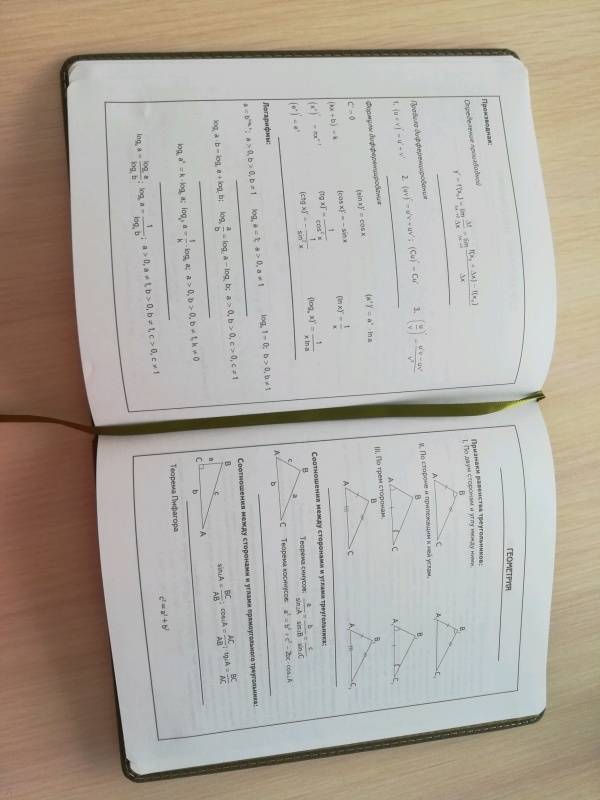 Производная:
Определение производной
y' = f'(x₀) = lim Δx→0 Δf/Δx = lim Δx→0 (f(x₀ + Δx) − f(x₀))/Δx
Правила дифференцирования
1. (u + v)' = u' + v' 2. (uv)' = u'v + uv'; (Cu)' = Cu' 3. (u/v)' = (u'v − uv')/v²
Формулы дифференцирования
C' = 0 (sin x)' = cos x (aˣ)' = aˣ · ln a
(kx + b)' = k (cos x)' = − sin x (ln x)' = 1/x
(xⁿ)' = nxⁿ⁻¹ (tg x)' = 1/cos² x (logₐ x)' = 1/(x ln a)
(eˣ)' = eˣ (ctg x)' = − 1/sin² x
Логарифмы:
a = b^(log_b a); a > 0, b > 0, b ≠ 1 logₐ a = 1; a > 0, a ≠ 1 log_b 1 = 0; b > 0, b ≠ 1
log_c a · b = log_c a + log_c b; log_c a/b = log_c a − log_c b; a > 0, b > 0, c > 0, c ≠ 1
a > 0, b > 0, b ≠ 1, k ≠ 0
a > 0, a ≠ 1, b > 0, b ≠ 1, c > 0, c ≠ 1
ГЕОМЕТРИЯ
Признаки равенства треугольников:
I. По двум сторонам и углу между ними.
B B₁
A C A₁ C₁
II. По стороне и прилежащим к ней углам.
B B₁
A C A₁ C₁
III. По трем сторонам.
B B₁
A C A₁ C₁
Соотношения между сторонами и углами треугольника:
B
c a
A b C
Теорема синусов: a/sin∠A = b/sin∠B = c/sin∠C
Теорема косинусов: a² = b² + c² − 2bc · cos∠A
Соотношения между сторонами и углами прямоугольного треугольника:
B
a c
C b A
sin∠A = BC/AB; cos∠A = AC/AB; tg∠A = BC/AC
Теорема Пифагора c² = a² + b²